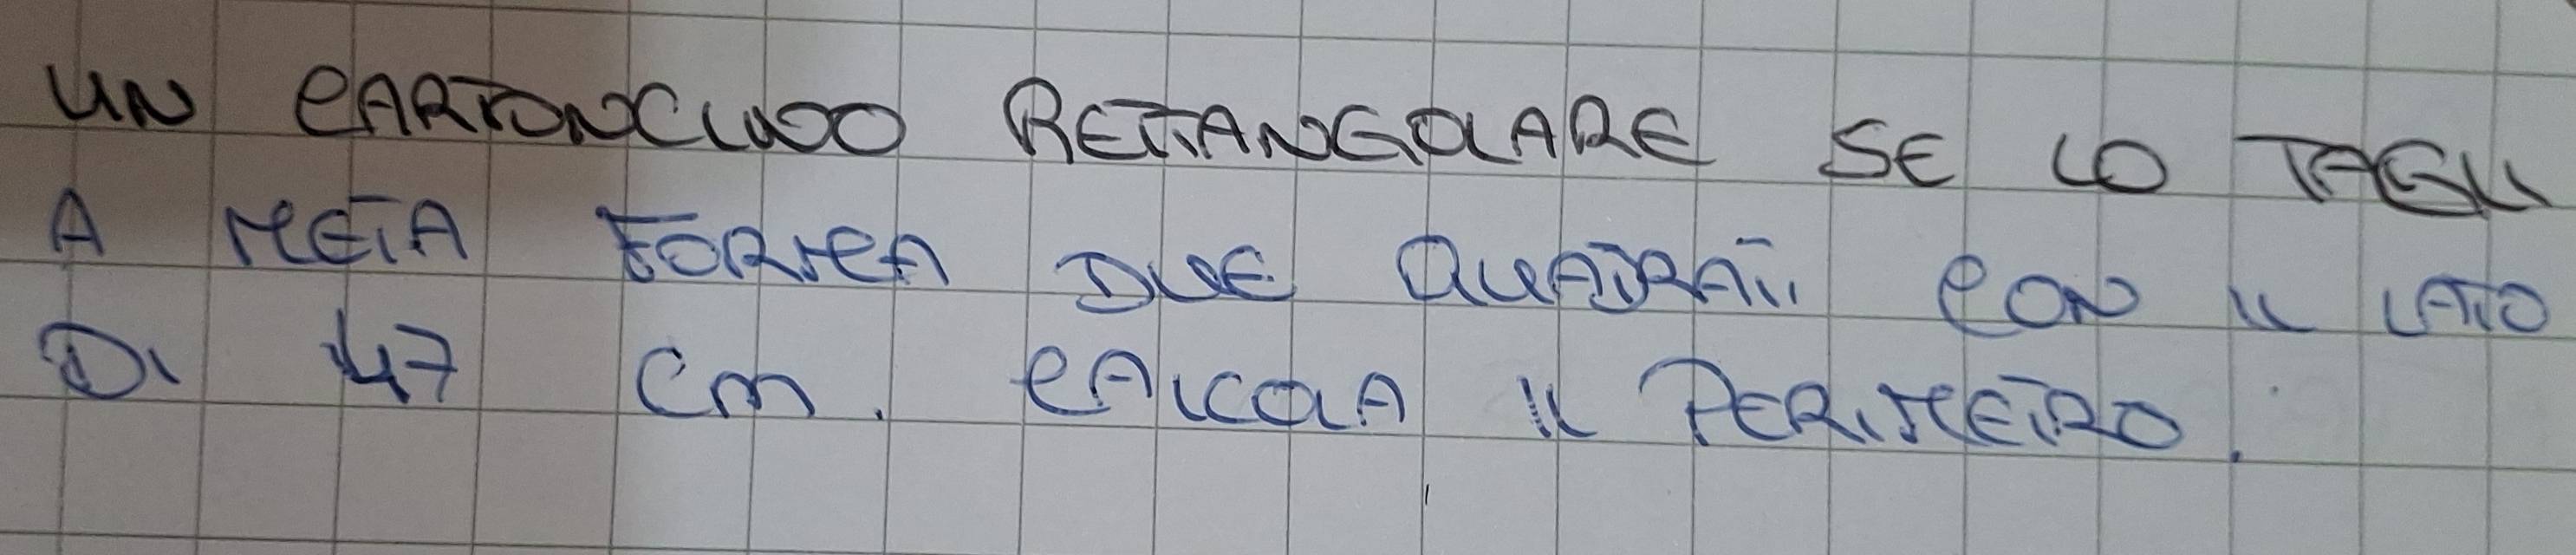 UN CARTONCINO RETTANGOLARE SE LO TAGLI
A METÀ FORMA DUE QUADRATI CON IL LATO
DI 47 cm. CALCOLA IL PERIMETRO.